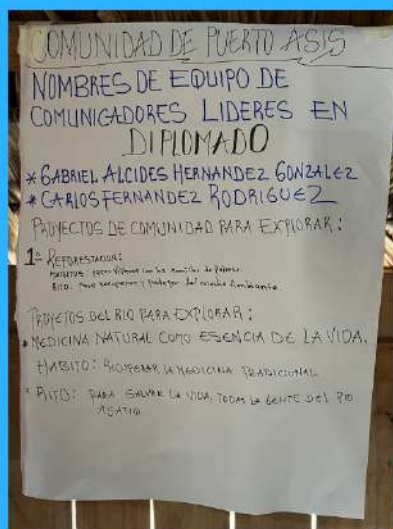 COMUNIDAD DE PUERTO ASIS
NOMBRES DE EQUIPO DE
COMUNICADORES LIDERES EN
DIPLOMADO
* GABRIEL ALCIDES HERNANDEZ GONZALEZ
* CARLOS FERNANDEZ RODRIGUEZ
PROYECTOS DE COMUNIDAD PARA EXPLORAR:
1º REFORESTACION:
HABITOS hacer Viveros con las semillas de
RITO: para recuperar y proteger del medio Ambiente.
PROYETOS DEL RIO PARA EXPLORAR:
* MEDICINA NATURAL COMO ESENCIA DE LA VIDA.
HABITO: RECUPERAR LA MEDICINA TRADICIONAL
* RITO: PARA SALVAR LA VIDA, TODAS LA GENTE DEL RIO